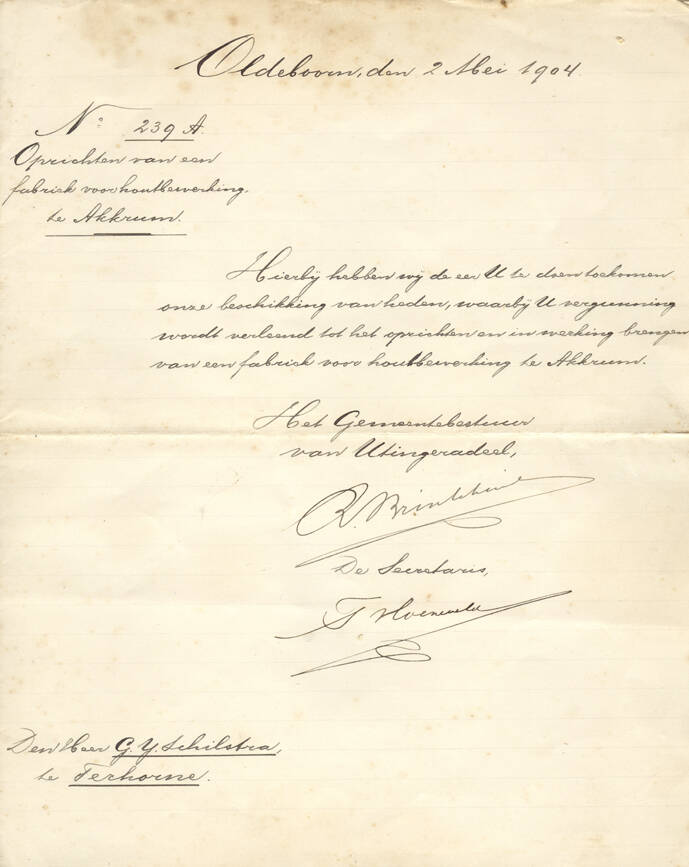 Oldeboorn, den 2 Mei 1904.
No. 239 A.
Oprichten van een
fabriek voor houtbewerking.
te Akkrum.
Hierbij hebben wij de eer U te doen toekomen
onze beschikking van heden, waarbij U vergunning
wordt verleend tot het oprichten en in werking brengen
van een fabriek voor houtbewerking te Akkrum.
Het Gemeentebestuur
van Utingeradeel,
De Secretaris,
Den Heer G. Y. Schilstra,
te Terhorne.